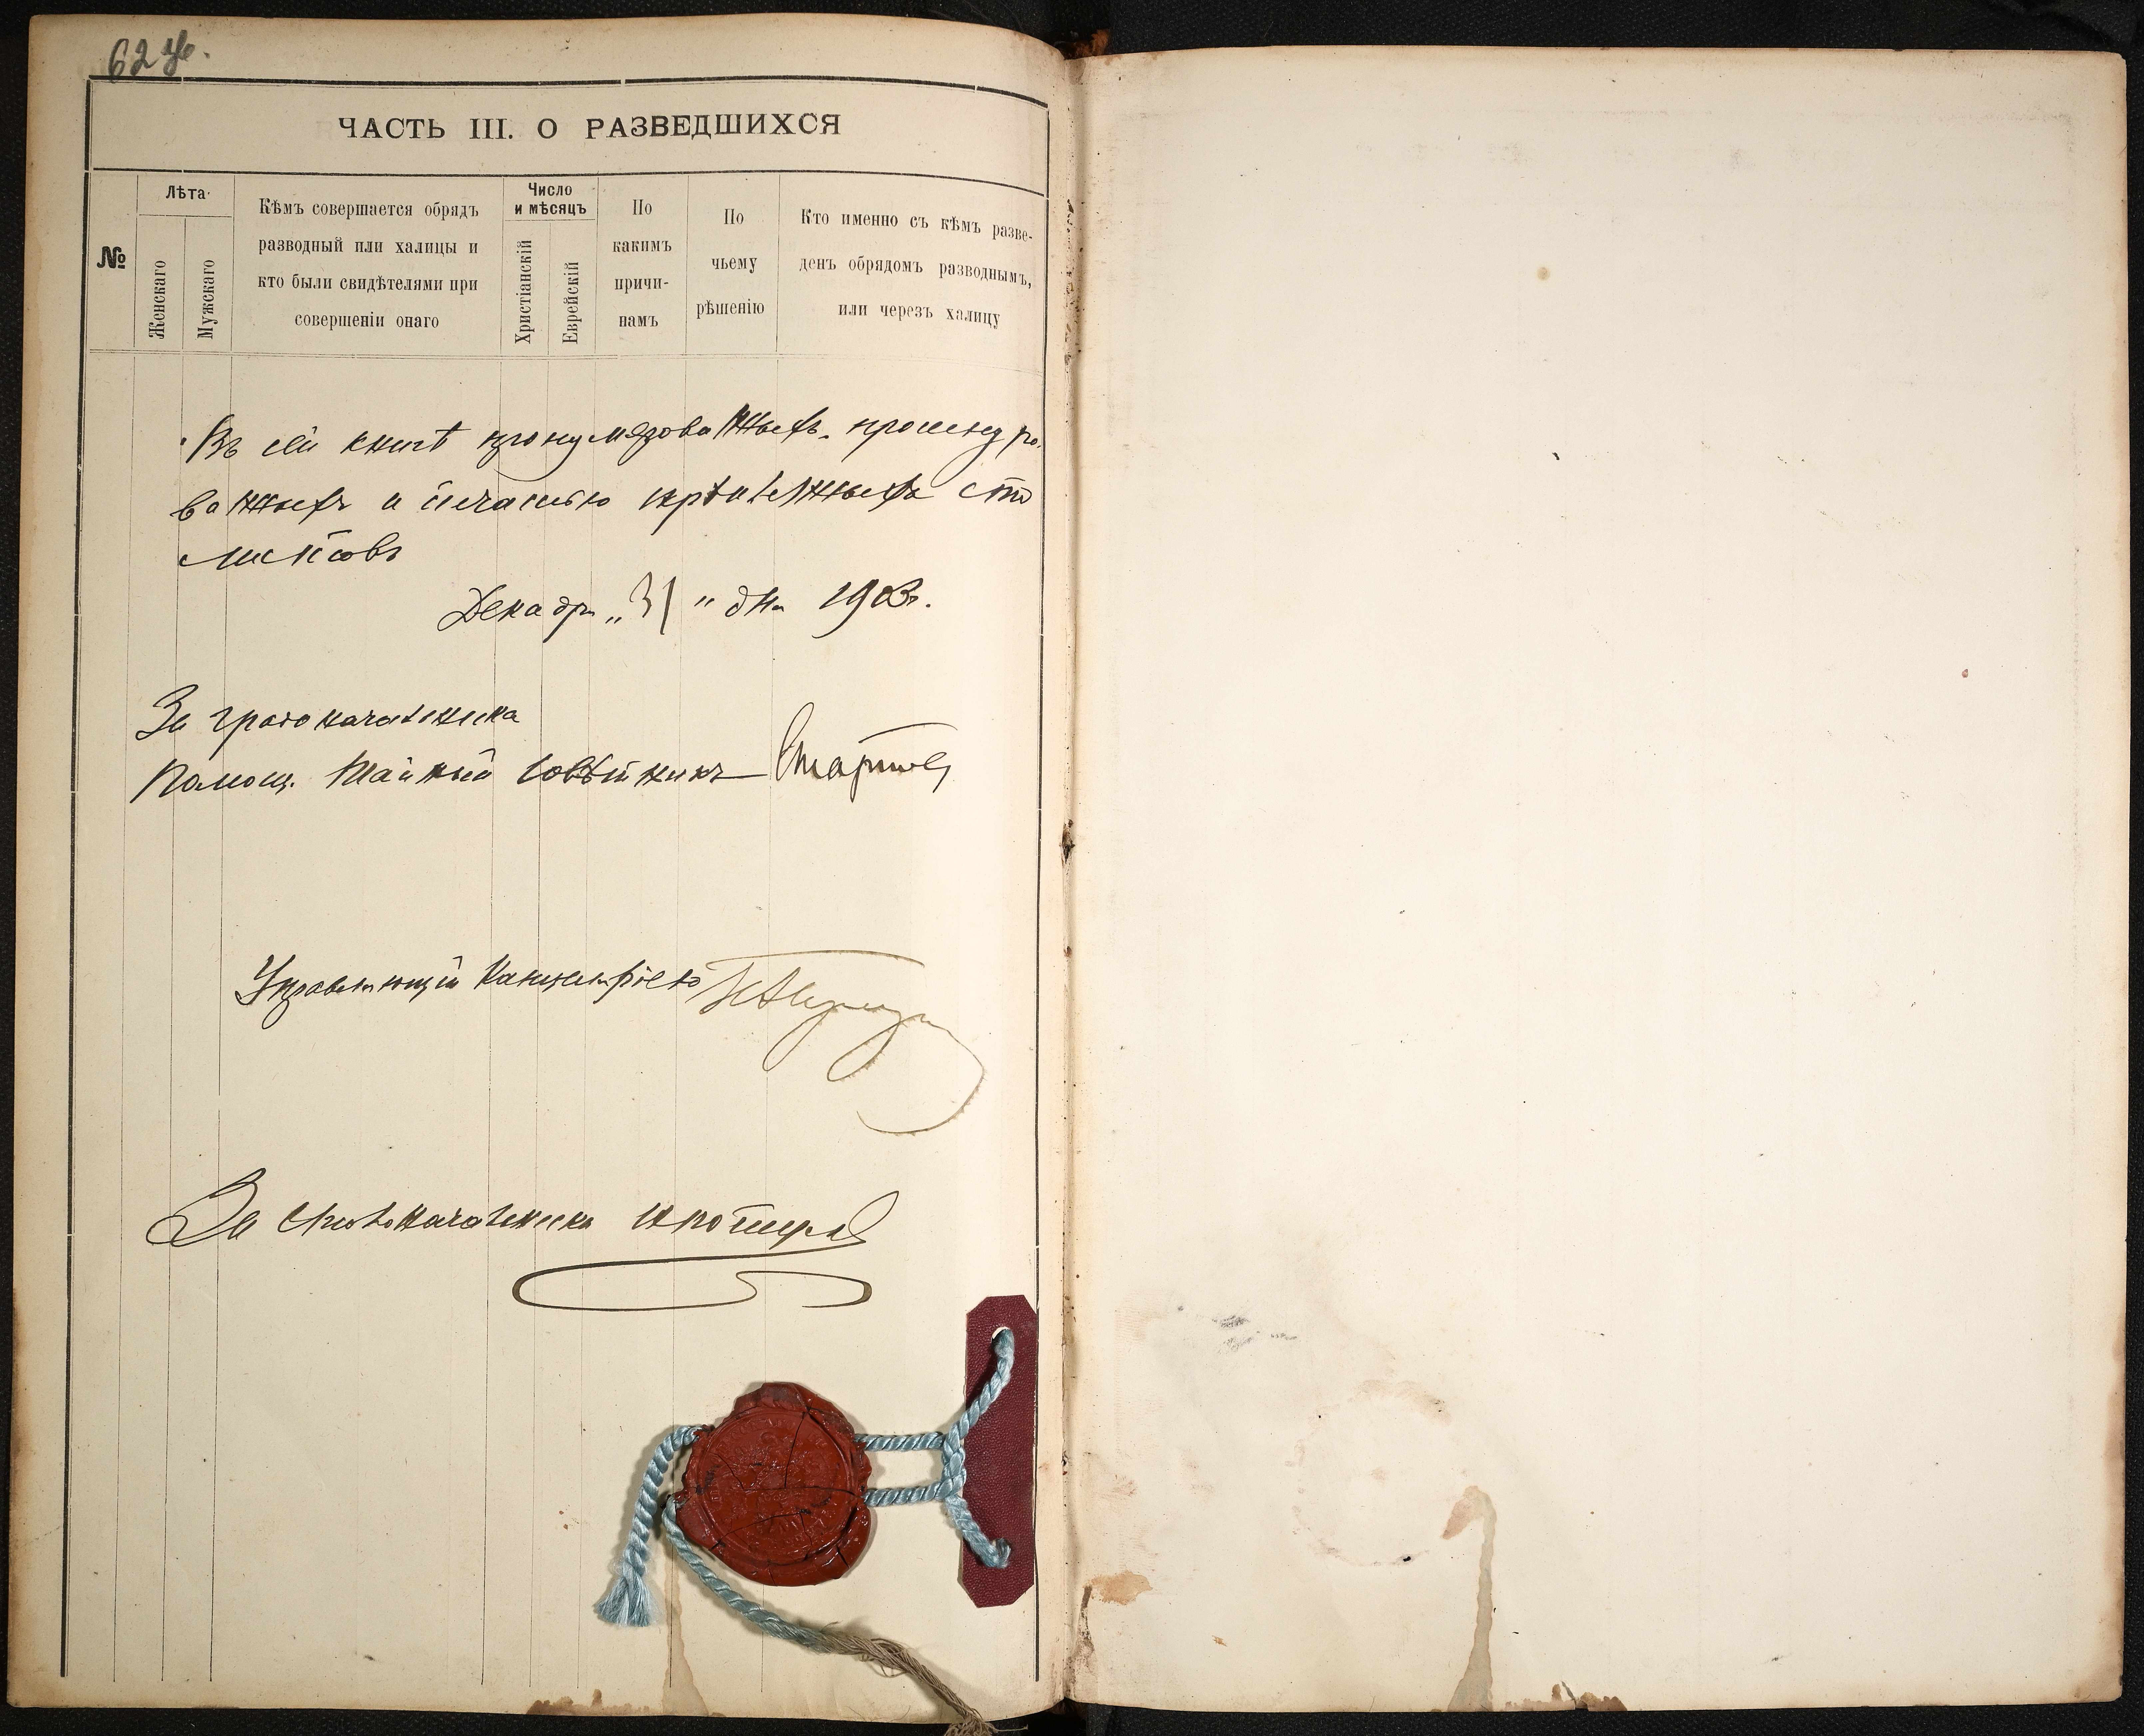 62
ЧАСТЬ III. О РАЗВЕДШИХСЯ
№
Лѣта
Женскаго
Мужскаго
Кѣмъ совершается обрядъ
разводный или халицы и
кто были свидѣтелями при
совершеніи онаго
Число
и мѣсяцъ
Христіанскій
Еврейскій
По
какимъ
причи-
намъ
По
чьему
рѣшенію
Кто именно съ кѣмъ разве-
денъ обрядомъ разводнымъ,
или черезъ халицу
Въ сей книгѣ пронумерованныхъ, прошнуро-
ванныхъ и печатью скрѣпленныхъ сто
листовъ
Декабря „31" дня 1903г.
За градоначальника
Помощ. Тайный Совѣтникъ
Управляющій Канцеляріею
За Столоначальника